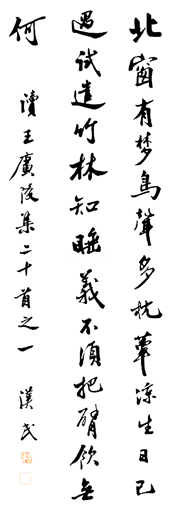 北窗有梦鸟聲多枕簟凉生日已
過試遣竹林知睡義不須把臂飲無
何
讀王廣陵集二十首之一 漢民